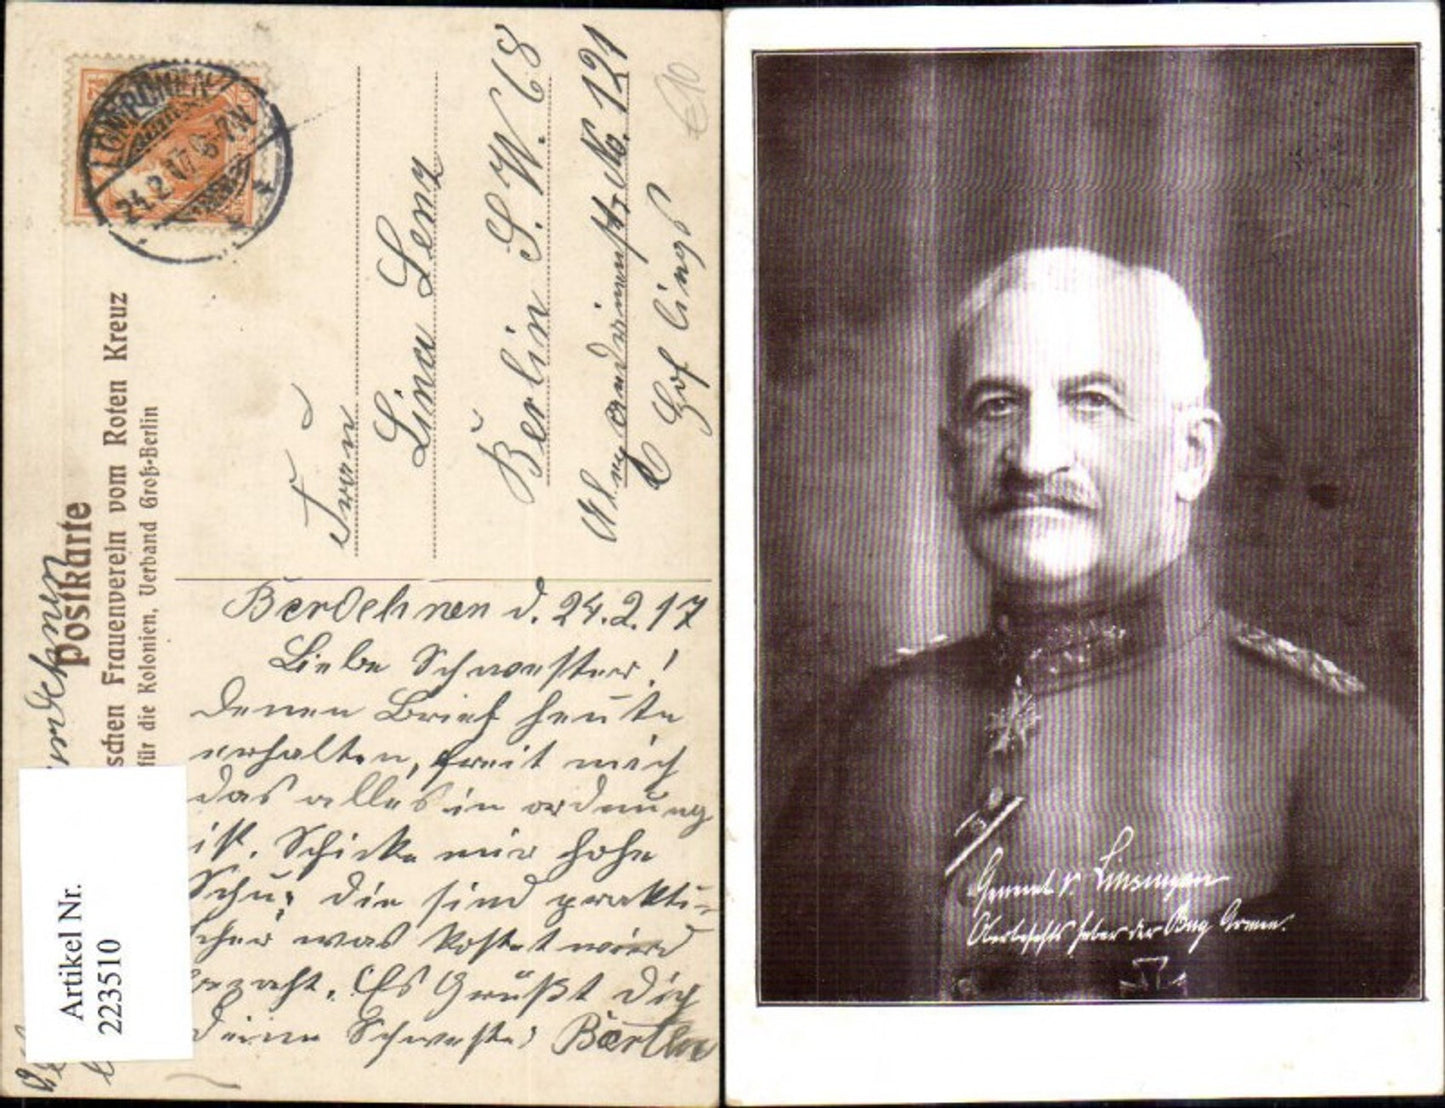 24.2.17. 6-7N
Postkarte
schen Frauenverein vom Roten Kreuz
für die Kolonien, Verband Groß-Berlin
Frau
Lina Lenz
Berlin S. W. 68
No. 121
Hof links
€10
d. 24.2.17
Liebe Schwester!
Deinen Brief heute
erhalten, freit mich
das alles in ordnung
ist. Schicke mir hohe
Schu, die sind prakti-
cher was kostet wird
bezaht. Es Grüßt dich
deine Schwester
Artikel Nr.
223510
General v. Linsingen
Oberbefehlshaber der Bug Armee.